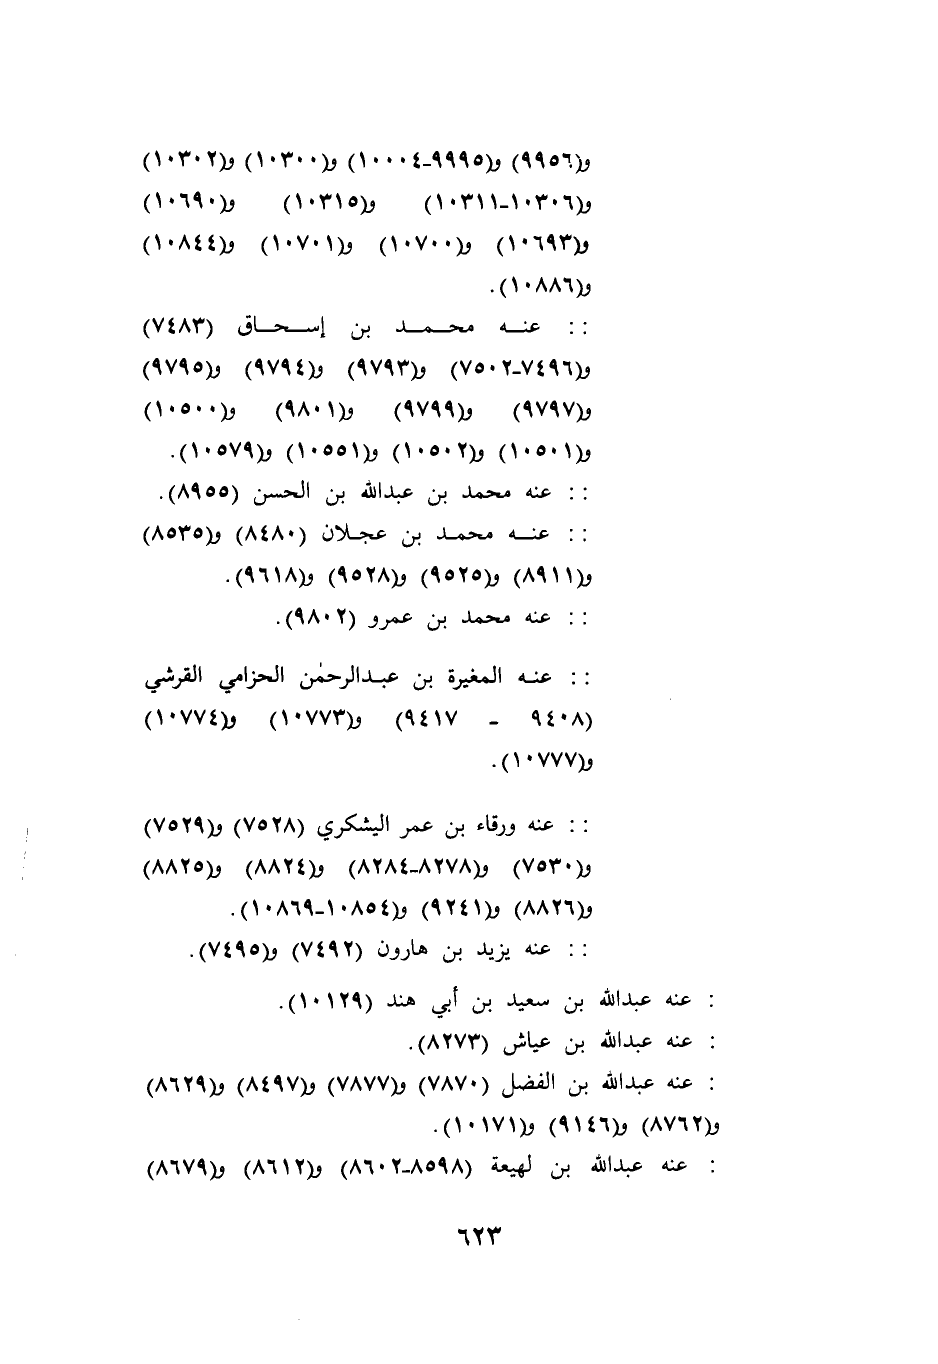 و(٩٩٥٦) و(٩٩٩٥-١٠٠٠٤) و(١٠٣٠٠) و(١٠٣٠٢)
و(١٠٣٠٦-١٠٣١١) و(١٠٣١٥) و(١٠٦٩٠)
و(١٠٦٩٣) و(١٠٧٠٠) و(١٠٧٠١) و(١٠٨٤٤)
و(١٠٨٨٦).
: : عنه محمد بن إسحاق (٧٤٨٣)
و(٧٤٩٦-٧٥٠٢) و(٩٧٩٣) و(٩٧٩٤) و(٩٧٩٥)
و(٩٧٩٧) و(٩٧٩٩) و(٩٨٠١) و(١٠٥٠٠)
و(١٠٥٠١) و(١٠٥٠٢) و(١٠٥٥١) و(١٠٥٧٩).
: : عنه محمد بن عبدالله بن الحسن (٨٩٥٥).
: : عنه محمد بن عجلان (٨٤٨٠) و(٨٥٣٥)
و(٨٩١١) و(٩٥٢٥) و(٩٥٢٨) و(٩٦١٨).
: : عنه محمد بن عمرو (٩٨٠٢).
: : عنه المغيرة بن عبدالرحمٰن الحزامي القرشي
(٩٤٠٨ - ٩٤١٧) و(١٠٧٧٣) و(١٠٧٧٤)
و(١٠٧٧٧).
: : عنه ورقاء بن عمر اليشكري (٧٥٢٨) و(٧٥٢٩)
و(٧٥٣٠) و(٨٢٧٨-٨٢٨٤) و(٨٨٢٤) و(٨٨٢٥)
و(٨٨٢٦) و(٩٢٤١) و(١٠٨٥٤-١٠٨٦٩).
: : عنه يزيد بن هارون (٧٤٩٢) و(٧٤٩٥).
: عنه عبدالله بن سعيد بن أبي هند (١٠١٢٩).
: عنه عبدالله بن عياش (٨٢٧٣).
: عنه عبدالله بن الفضل (٧٨٧٠) و(٧٨٧٧) و(٨٤٩٧) و(٨٦٢٩)
و(٨٧٦٢) و(٩١٤٦) و(١٠١٧١).
: عنه عبدالله بن لهيعة (٨٥٩٨-٨٦٠٢) و(٨٦١٢) و(٨٦٧٩)
٦٢٣